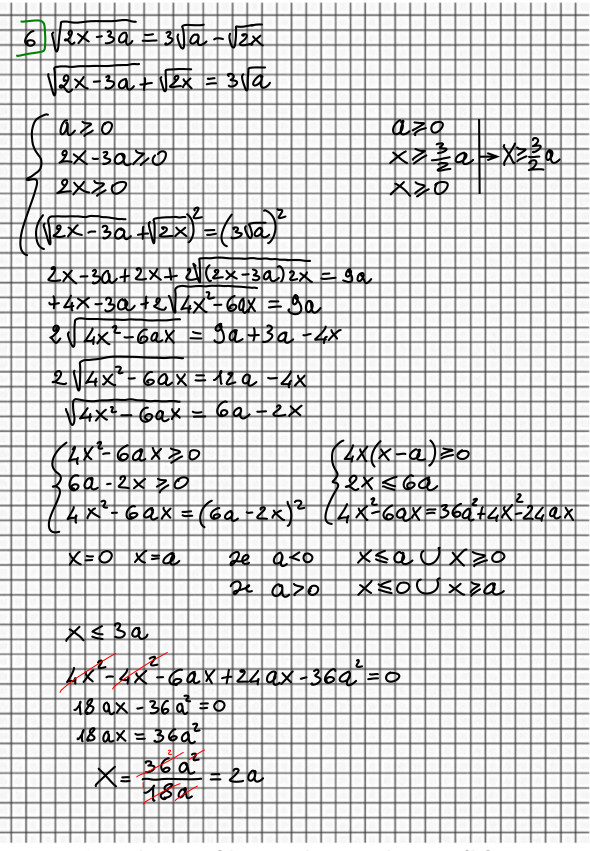 6 √(2x-3a) = 3√a - √(2x)
√(2x-3a) + √(2x) = 3√a
a ≥ 0
2x-3a ≥ 0
2x ≥ 0
(√(2x-3a) + √(2x))² = (3√a)²
a ≥ 0
x ≥ 3/2 a → x ≥ 3/2 a
x ≥ 0
2x-3a+2x+2√((2x-3a)2x) = 9a
+4x-3a+2√(4x²-6ax) = 9a
2√(4x²-6ax) = 9a+3a-4x
2√(4x²-6ax) = 12a-4x
√(4x²-6ax) = 6a-2x
4x²-6ax ≥ 0
6a-2x ≥ 0
4x²-6ax = (6a-2x)²
4x(x-a) ≥ 0
2x ≤ 6a
4x²-6ax = 36a²+4x²-24ax
x=0 x=a se a<0 x ≤ a ∪ x ≥ 0
se a>0 x ≤ 0 ∪ x ≥ a
x ≤ 3a
4x²-4x²-6ax+24ax-36a² = 0
18ax-36a² = 0
18ax = 36a²
x = 36² a²/18a = 2a